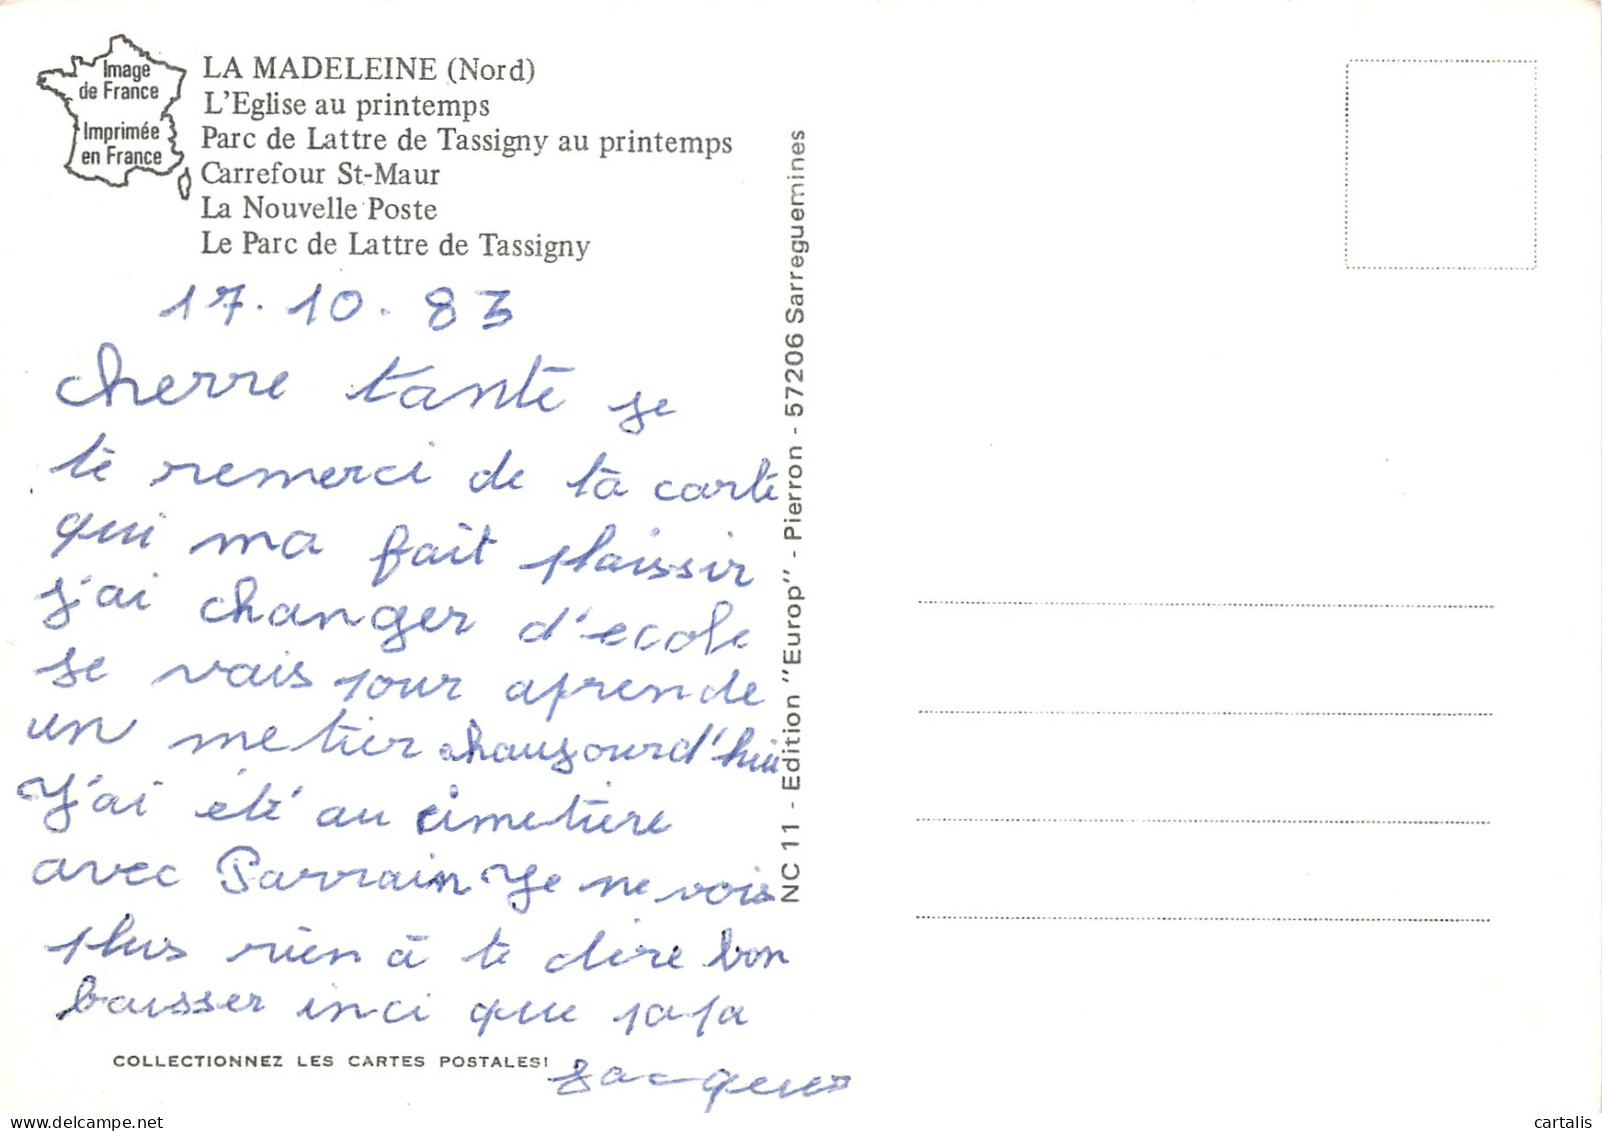 Image
de France
Imprimée
en France
LA MADELEINE (Nord)
L'Eglise au printemps
Parc de Lattre de Tassigny au printemps
Carrefour St-Maur
La Nouvelle Poste
Le Parc de Lattre de Tassigny
17.10.83
cherre tante je
te remerci de ta carte
qui ma fait plaissir
j'ai changer d'ecole
je vais pour aprende
un metier ahaujourd'hui
J'ai été au cimetiere
avec Parrain Je ne vois
plus rien à te dire bon
baisser inci que papa
Jacques
COLLECTIONNEZ LES CARTES POSTALES!
NC 11 - Edition "Europ" - Pierron - 57206 Sarreguemines
cartalis